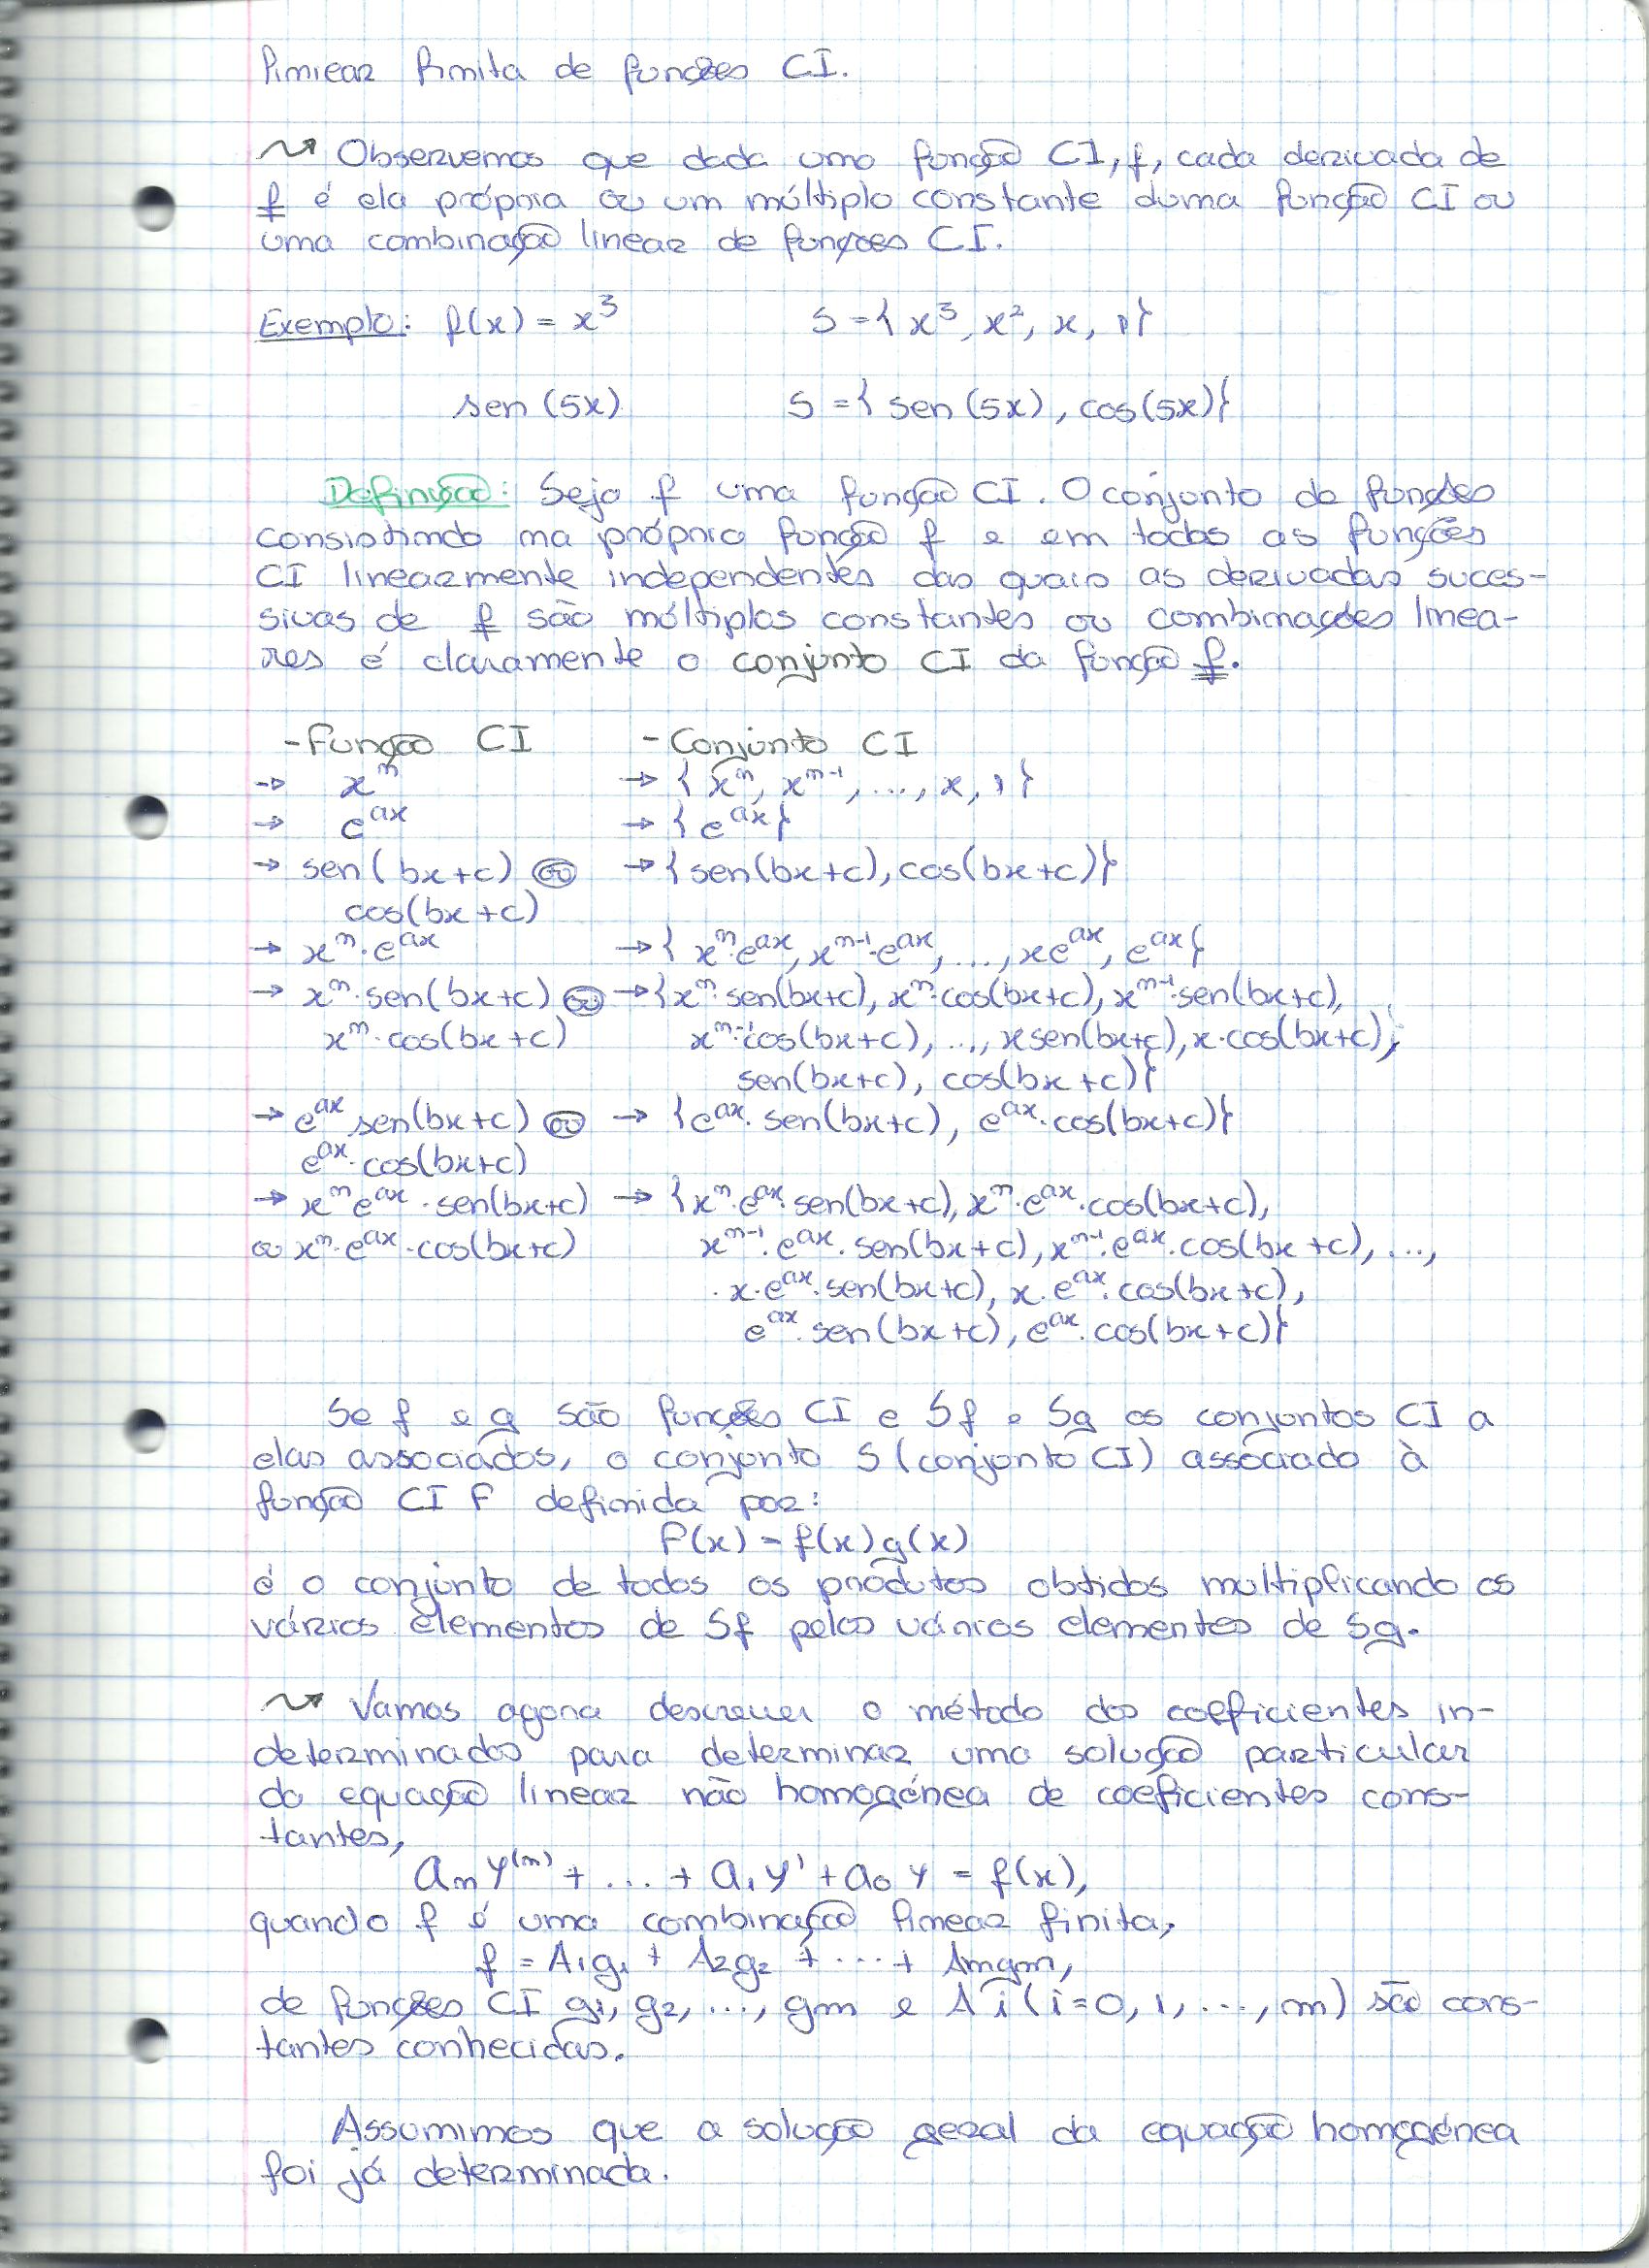 linear finita de funções CI.
Observemos que dada uma função CI, f, cada derivada de
f é ela própria ou um múltiplo constante duma função CI ou
uma combinação linear de funções CI.
Exemplo: f(x) = x³ S = { x³, x², x, 1}
sen (5x) S = { sen (5x), cos(5x)}
Definição: Seja f uma função CI. O conjunto de funções
consistindo na própria função f e em todas as funções
CI linearmente independentes das quais as derivadas suces-
sivas de f são múltiplos constantes ou combinações linea-
res é claramente o conjunto CI da função f.
- Função CI - Conjunto CI
→ xⁿ → { xⁿ, xⁿ⁻¹, ..., x, 1 }
→ e^{ax} → { e^{ax} }
→ sen( bx+c) ou → { sen(bx+c), cos(bx+c)}
cos(bx+c)
→ xⁿ·e^{ax} → { xⁿ·e^{ax}, xⁿ⁻¹·e^{ax}, ..., xe^{ax}, e^{ax} }
→ xⁿ·sen(bx+c) ou → {xⁿ·sen(bx+c), xⁿ·cos(bx+c), xⁿ⁻¹·sen(bx+c),
xⁿ·cos(bx+c) xⁿ⁻¹·cos(bx+c), ..., xsen(bx+c), x·cos(bx+c),
sen(bx+c), cos(bx+c)}
→ e^{ax}·sen(bx+c) ou → {e^{ax}·sen(bx+c), e^{ax}·cos(bx+c)}
e^{ax}·cos(bx+c)
→ xⁿe^{ax}·sen(bx+c) → {xⁿ·e^{ax}·sen(bx+c), xⁿ·e^{ax}·cos(bx+c),
ou xⁿ·e^{ax}·cos(bx+c) xⁿ⁻¹·e^{ax}·sen(bx+c), xⁿ⁻¹·e^{ax}·cos(bx+c), ...,
x·e^{ax}·sen(bx+c), x·e^{ax}·cos(bx+c),
e^{ax}·sen(bx+c), e^{ax}·cos(bx+c)}
Se f e g são funções CI e Sf e Sg os conjuntos CI a
elas associados, o conjunto S (conjunto CI) associado à
função CI F definida por:
F(x) = f(x)g(x)
é o conjunto de todos os produtos obtidos multiplicando os
vários elementos de Sf pelos vários elementos de Sg.
Vamos agora descrever o método dos coeficientes in-
determinados para determinar uma solução particular
da equação linear não homogénea de coeficientes cons-
tantes,
aₙy⁽ⁿ⁾ + ... + a₁y' + a₀y = f(x),
quando f é uma combinação linear finita,
f = A₁g₁ + A₂g₂ + ... + Amgm,
de funções CI g₁, g₂, ..., gm e Ai (i=0, 1, ..., m) são cons-
tantes conhecidas.
Assumimos que a solução geral da equação homogénea
foi já determinada.